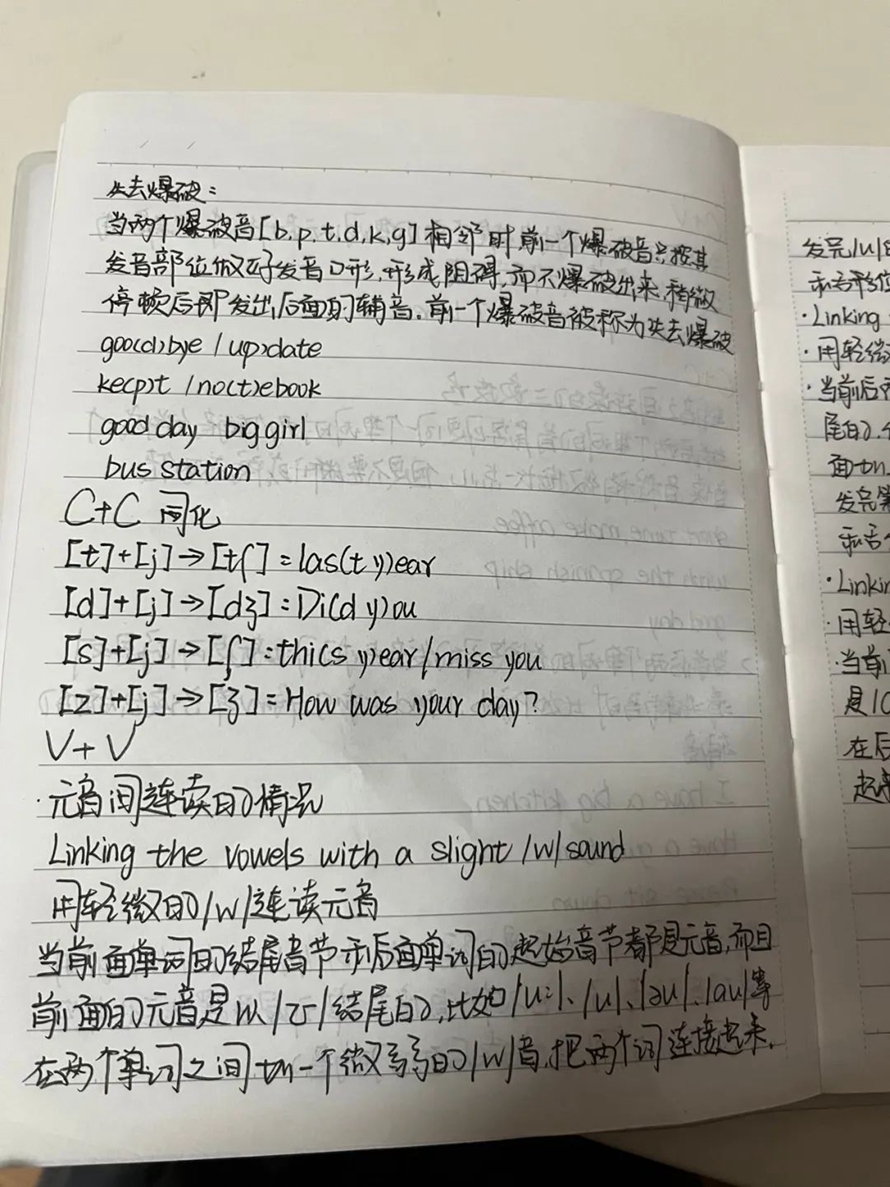 失去爆破：
当两个爆破音[b,p,t,d,k,g]相邻时前一个爆破音只按其
发音部位做好发音口形,形成阻碍,而不爆破出来,稍微
停顿后即发出后面的辅音.前一个爆破音被称为失去爆破
goo(d)bye/up)date
ke(p)t/no(t)ebook
good day big girl
bus station
C+C 同化
[t]+[j]→[tʃ]=las(t y)ear
[d]+[j]→[dʒ]=Di(d y)ou
[s]+[j]→[ʃ]=thi(s y)ear/miss you
[z]+[j]→[ʒ]=How was your day?
V+V
·元音间连读的情况
Linking the vowels with a slight /w/ sound
用轻微的/w/连读元音
当前面单词的结尾音节和后面单词的起始音节都是元音,而且
前面的元音是以/ʊ/结尾的,比如/u:/、/u/、/əu/、/au/等
在两个单词之间加一个微弱的/w/音,把两个词连接起来.
发完/u/
·Linking
·用轻微
·当前后
尾的,
面加
发完
·Linkin
·用轻
·当前
是/
在后
起来